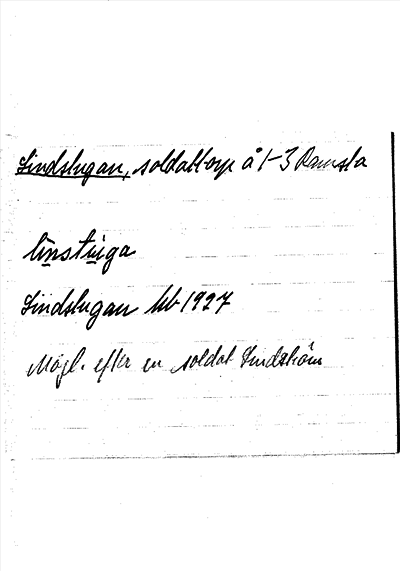 Lindstugan, soldattorp å 1-3 Ramsta
linstuga
Lindstugan Ub 1927
Möjl. efter en soldat Lindström